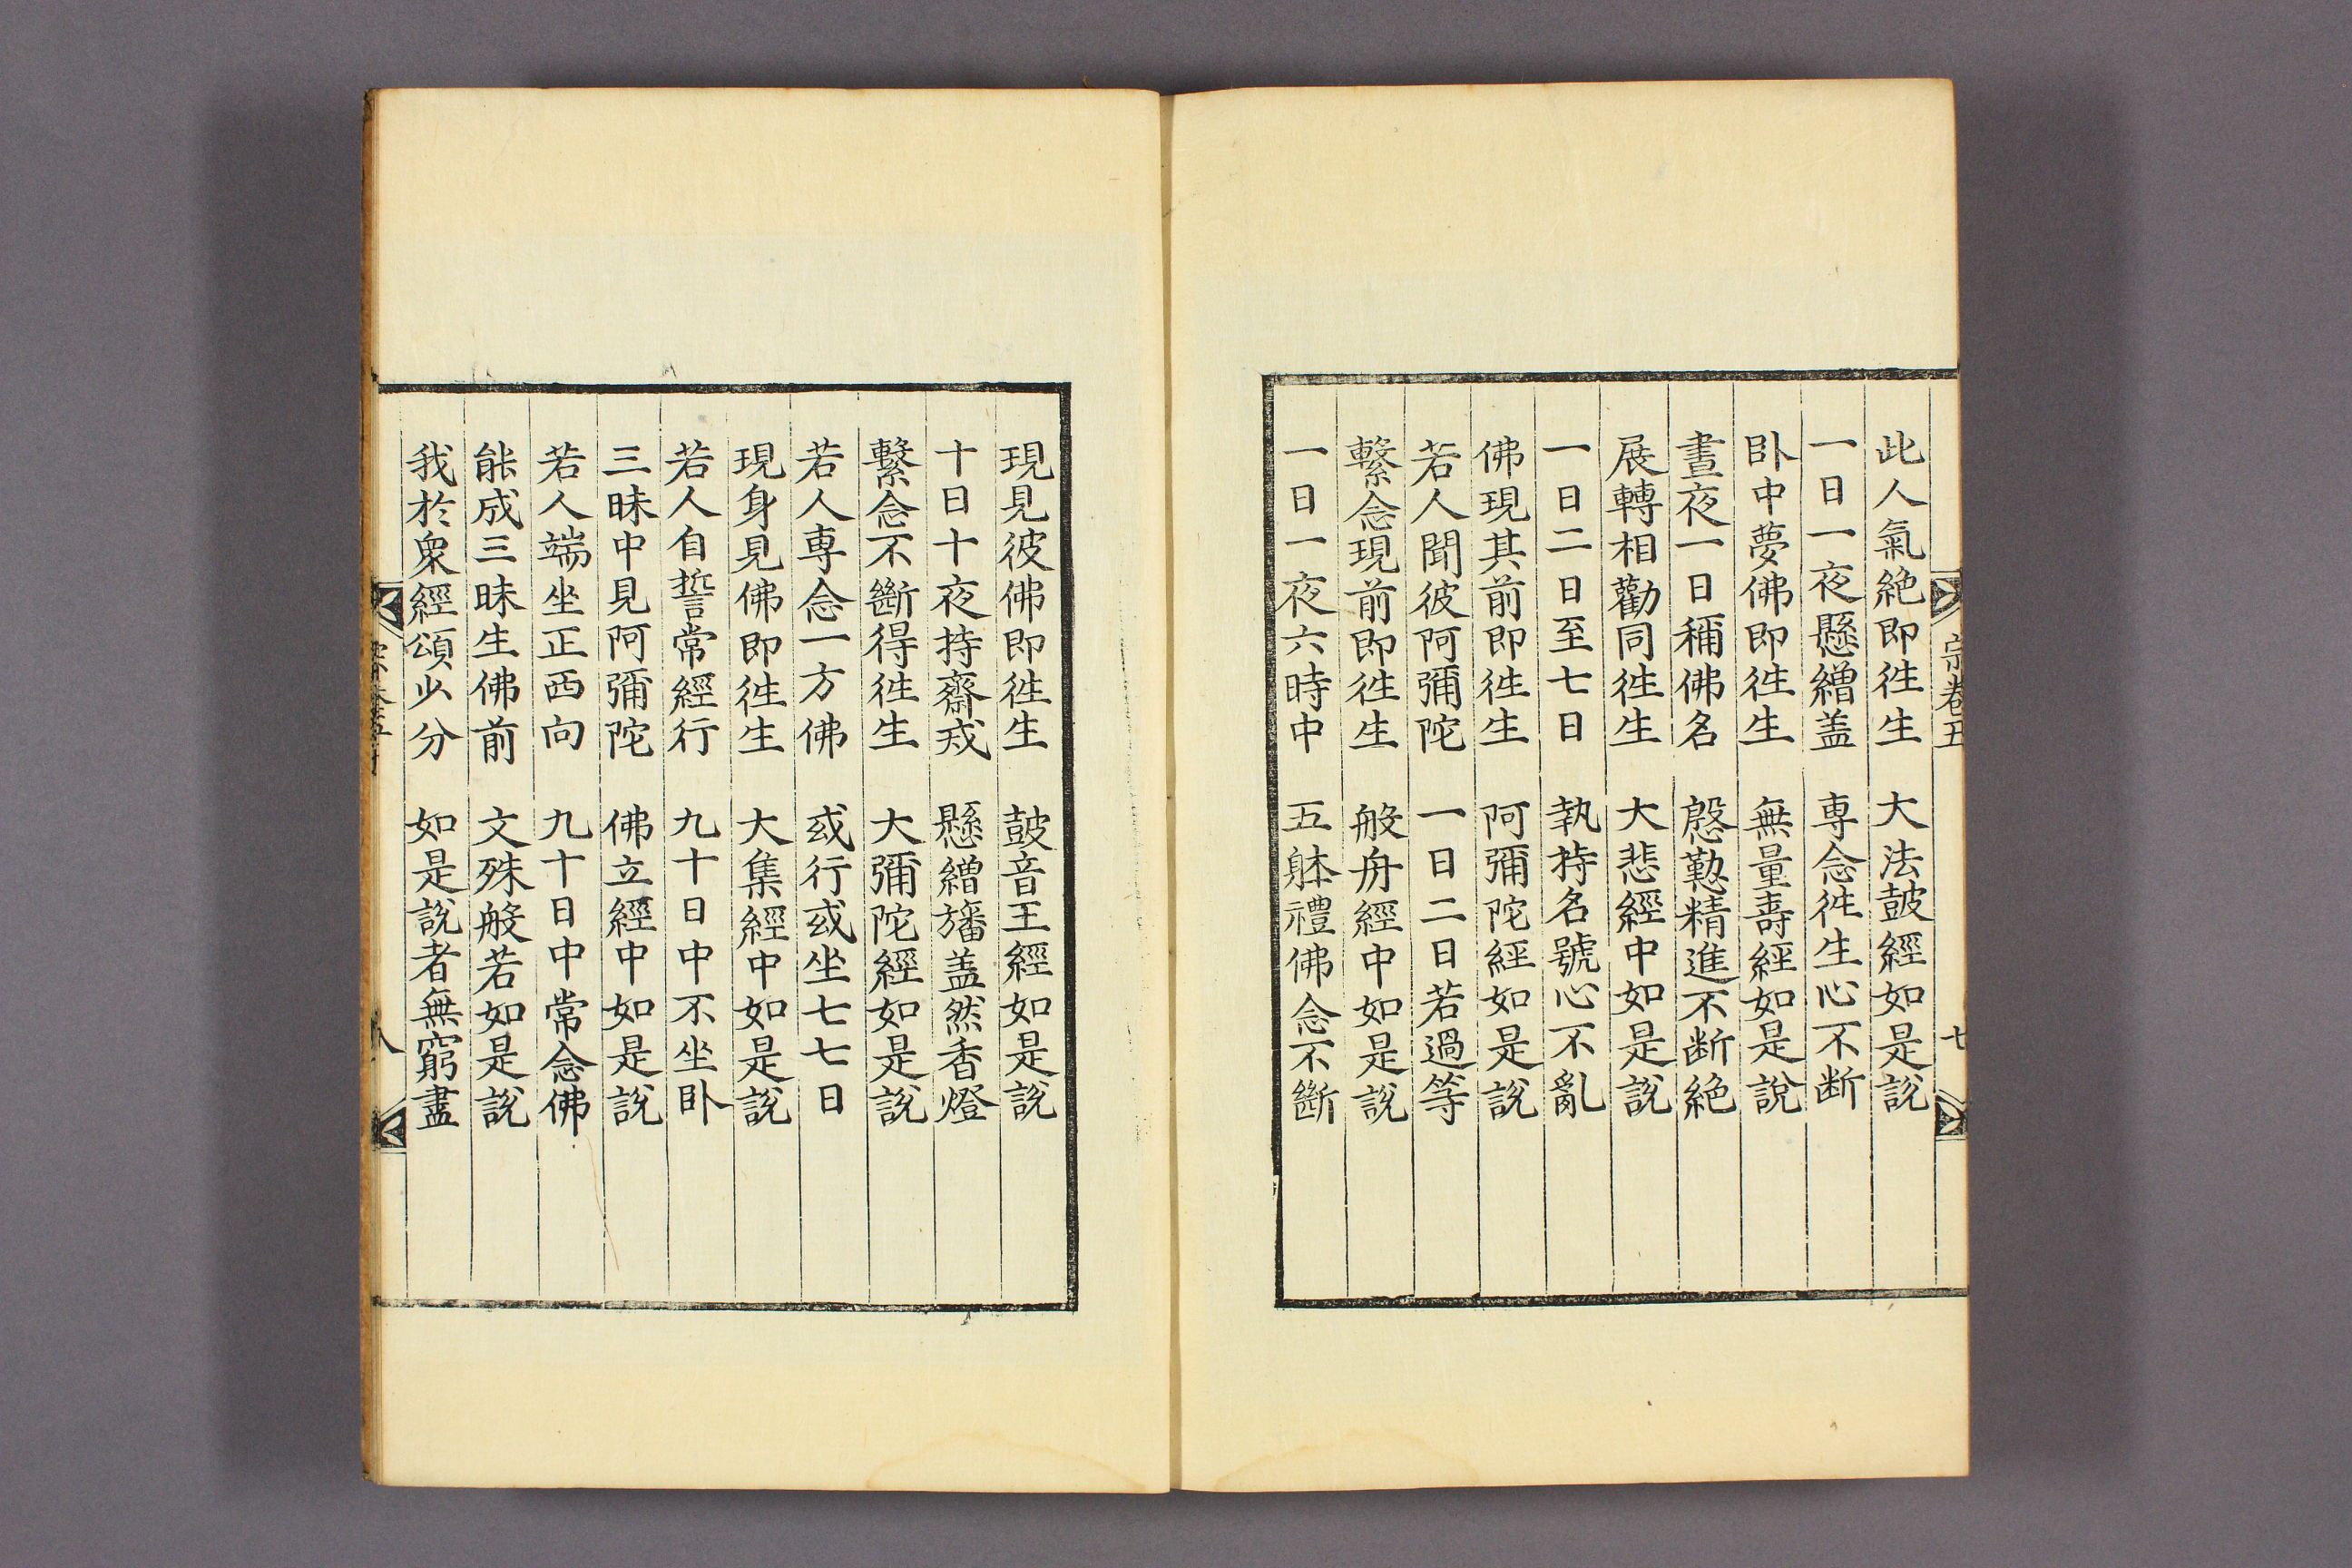 宗卷五
七
此人氣絶即徃生　大法鼓經如是說
一日一夜懸繒盖　専念徃生心不断
卧中夢佛即徃生　無量壽經如是說
晝夜一日稱佛名　慇懃精進不断絶
展轉相勸同徃生　大悲經中如是說
一日二日至七日　執持名號心不亂
佛現其前即徃生　阿彌陀經如是說
若人聞彼阿彌陀　一日二日若過等
繫念現前即徃生　般舟經中如是說
一日一夜六時中　五躰禮佛念不斷
現見彼佛即徃生　鼓音王經如是說
十日十夜持齋戒　懸繒旛盖然香燈
繫念不斷得徃生　大彌陀經如是說
若人専念一方佛　或行或坐七七日
現身見佛即徃生　大集經中如是說
若人自誓常經行　九十日中不坐卧
三昧中見阿彌陀　佛立經中如是說
若人端坐正西向　九十日中常念佛
能成三昧生佛前　文殊般若如是說
我於衆經頌少分　如是說者無窮盡
八